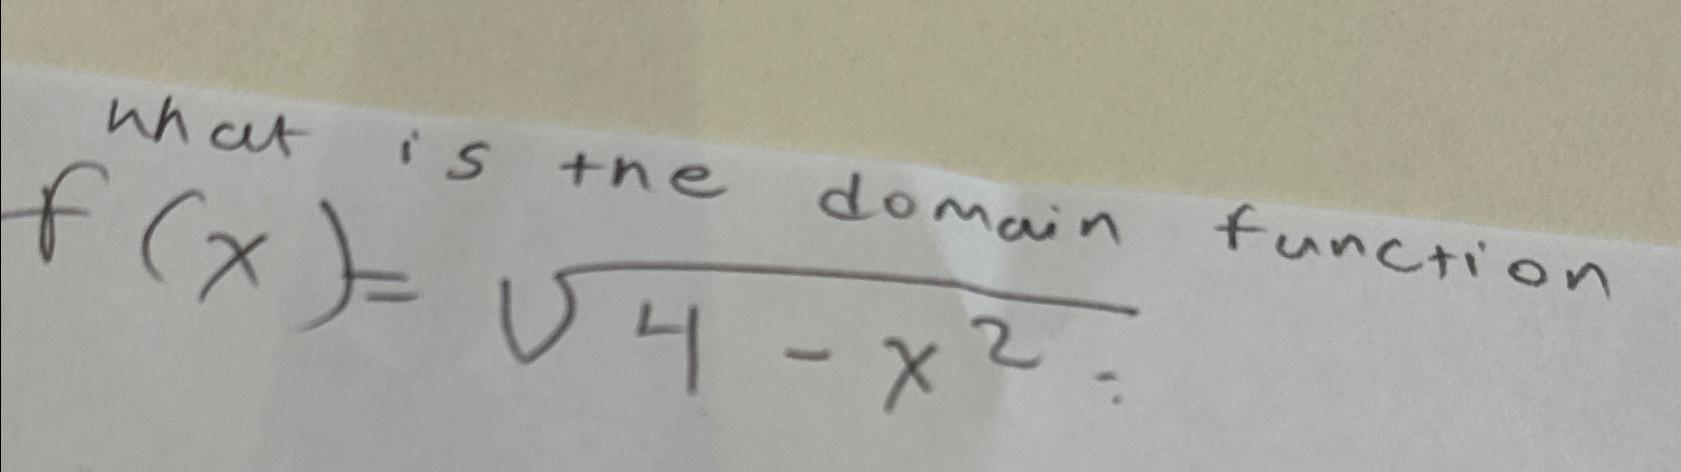 what is the domain function
f(x)=√4-x²: